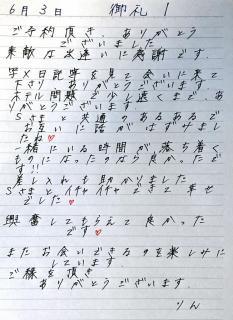 6月3日 御礼 1
ご予約頂き、ありがとう
ございました
素敵な出逢いに感謝です。
写メ日記等を見て会いに来て
下さり ありがとうございます
ホテル問題で 遠くまで、あ
りがとうございます
Sさまと 共通の あるあるで
お互いに話がはずみまし
たね♥
一緒にいる時間が 落ち着く
ものになったのなら 良かったで
す!!
差し入れも助かりました
Sさまと イチャイチャできて 幸せ
でした♥
興奮してもらえて 良かった
です♥
またお会いできるのを楽しみに
しています
ご縁を頂き
ありがとうございます
りん